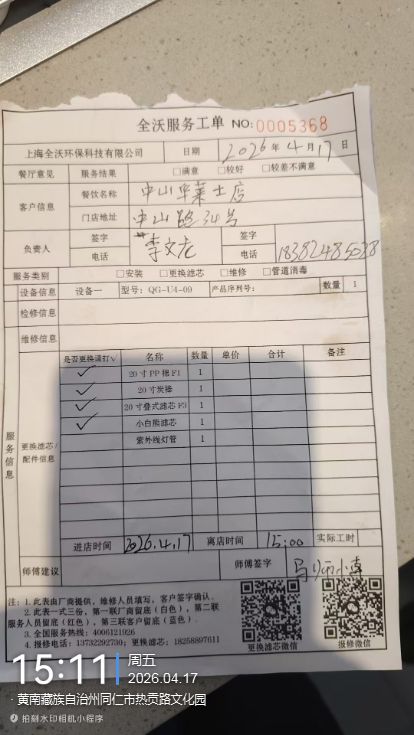 全沃服务工单 NO:0005368
上海全沃环保科技有限公司 日期 2026年4月17日
餐厅意见 服务结果 □满意 □较好 □较差不满意
客户信息 餐饮名称 中山华莱士店
门店地址 中山路34号
负责人 签字 李文龙 签字
电话 电话
服务类别 □安装 □更换滤芯 □维修 □管道消毒
设备信息 设备一 型号:QG-U4-09 产品序列号: 数量 1
检修信息
维修信息
服务信息 更换滤芯/配件信息
是否更换请打√ 名称 数量 单价 合计 备注
✓ 20寸PP棉F1 1
✓ 20寸炭棒 1
✓ 20寸叠式滤芯F3 1
✓ 小白熊滤芯 1
紫外线灯管 1
进店时间 2026.4.17 离店时间 15:00 实际工时
师傅建议 师傅签字
注:1.此表由厂商提供,维修人员填写,客户签字确认.
2.此表一式三份,第一联厂商留底(白色),第二联
服务人员留底(红色),第三联客户留底(蓝色).
3.全国服务热线:4006121026
4.报修电话:13732292730;更换滤芯:18258897611
更换滤芯微信 报修微信
15:11 周五
2026.04.17
·黄南藏族自治州同仁市热贡路文化园
拍刻水印相机小程序